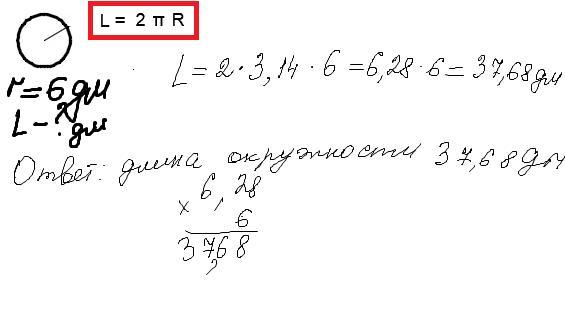 L = 2 π R
r = 6 дм
L - ? дм
L = 2 · 3,14 · 6 = 6,28 · 6 = 37,68 дм
Ответ: длина окружности 37,68 дм
× 6,28
6
37,68